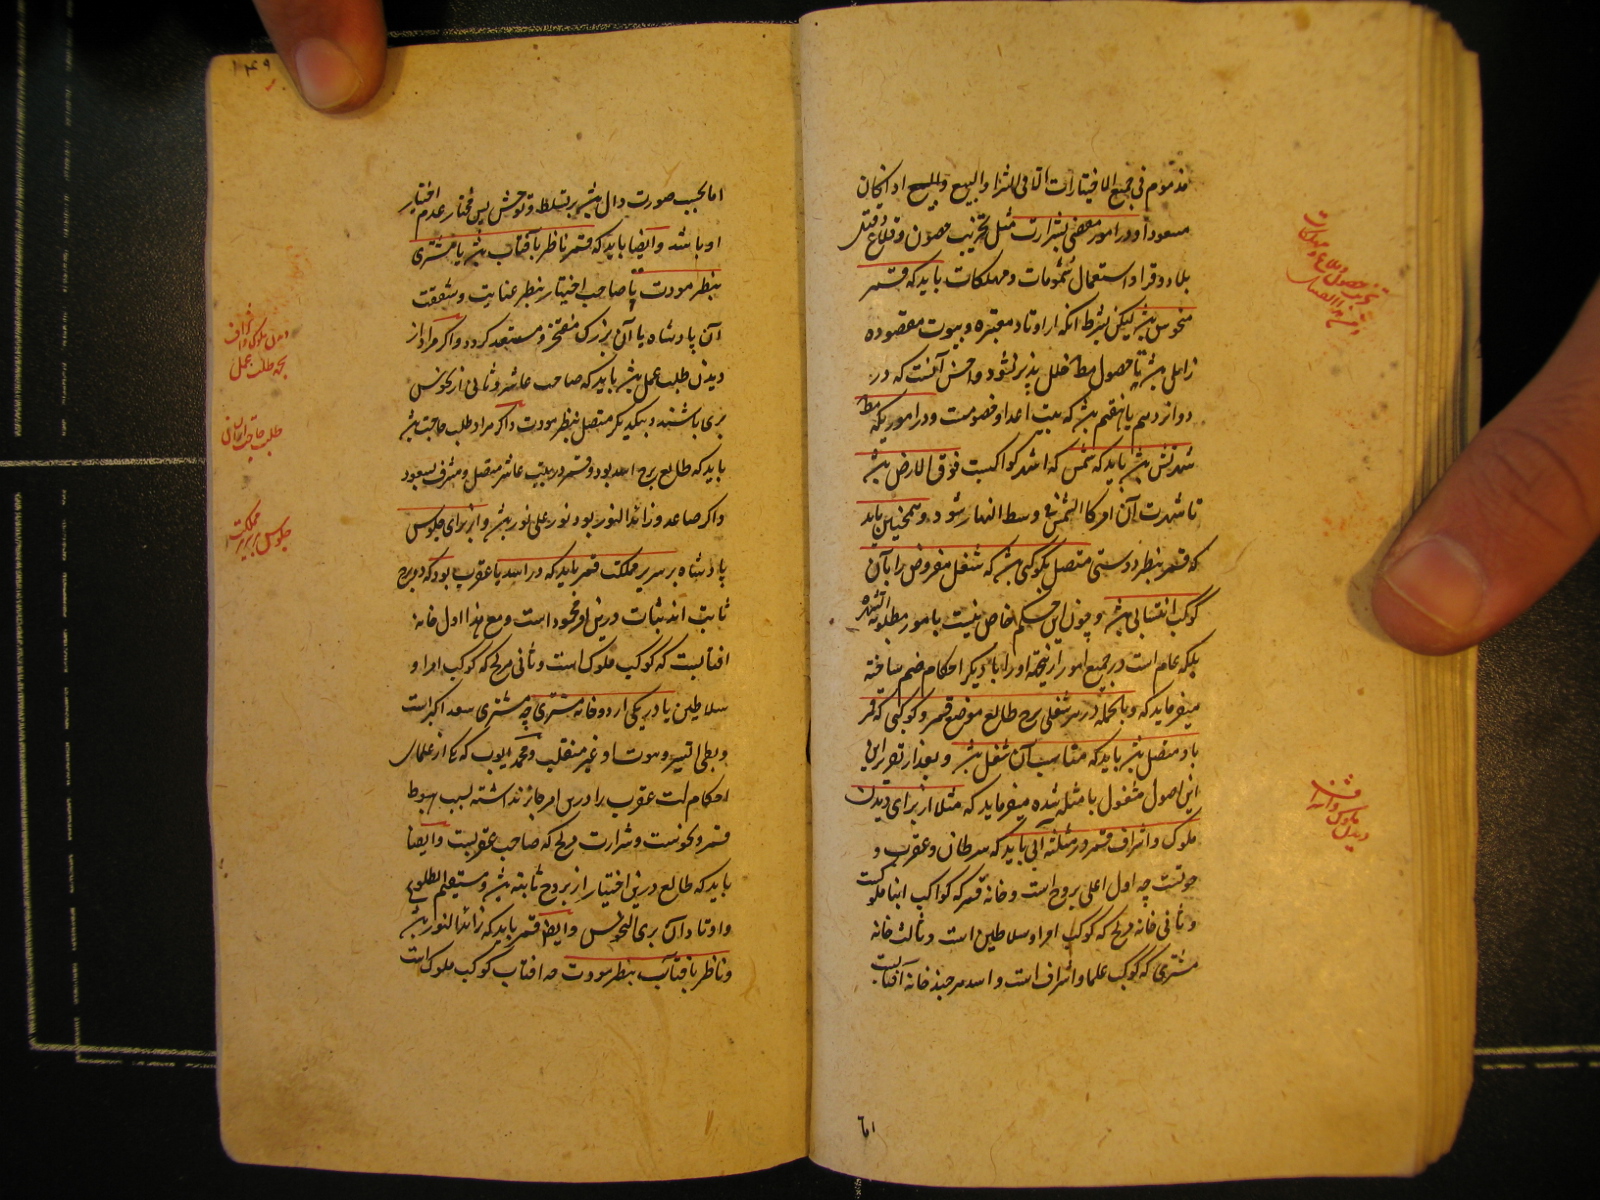 مذموم فی جمیع الاختیارات الا فی الشرا والبیع والبیع اذا کان
مسعودا و در امور مقتضی بشرارت مثل تخریب حصون و قلاع و قتل
بلاد و قرا و استعمال شمومات و مهلکات باید که قمر
منحوس بشد لیکن بشرط انکه از اوتاد معتبره و بیوت مقصوده
زایل بشد تا حصول مط خلل پذیر نشود و احسن آنست که در
دوازدهم یا هفتم بشد که بیت اعدا و خصومت و در اموریکه مط
شهرتش بشد باید که شمس که اشهر کواکبست فوق الارض بشد
تا شهرت آن امر کالشمس فی وسط النهار شود و همچنین باید
که قمر بنظر دوستی متصل بکوکبی بشد که شغل مفروض را بآن
کوکب انتسابی بشد و چون این حکم خاص نیست بامور مطلوبه الشهره
بلکه عام است در جمیع امور ازینجهة او را با دیگر احکام ضم ساخته
میفرماید که و بالجمله در هر شغلی برج طالع موضع قمر و کوکبی که قمر
باو متصل بشد باید که مناسب آن شغل بشد و بعد از تقریر این
این اصول مشغول بامثله شده میفرماید که مثلا از برای دیدن
ملوک و اشراف قمر در مثلثه آبی باید که سرطان و عقرب و
حوتست چه اول اعلی بروج است و خانه قمر که کواکب ابنا ملوکست
و ثانی خانه مریخ که کوکب امرا و سلاطین است و ثالث خانه
مشتری که کوکب علما و اشراف است و اسد هر چند خانه آفتابست
دیدن ملوک و اشراف
۱۴۹
اما بحسب صورت دال بشد بر تسلط و توحش پس مختار عدم اختیار
او باشد و ایضا باید که قمر ناظر بآفتاب بشد یا مشتری
بنظر مودت تا صاحب اختیار بنظر عنایت و شفقت
آن پادشاه یا آن بزرک مفتخر و مستعد کردد و اکر مراد از
دیدن طلب عمل بشد باید که صاحب عاشر و ثانی از نحوس
بری باشند و بیکدیکر متصل بنظر مودت و اکر مراد طلب حاجت بشد
باید که طالع برج اسد بود و قمر در بیت عاشر متصل و مشرف بسعود
و اکر صاعد و زاید النور بود نور علی نور بشد و از برای جلوس
پادشاه بر سریر مملکت قمر باید که در اسد یا عقرب بود که دو برج
ثابت اند ثبات درین امر محمود است و مع هذا اول خانه
افتابست که کوکب ملوک است و ثانی مریخ که کوکب امرا و
سلاطین یا در یکی از دو خانه مشتری چه مشتری سعد اکبر است
و بطی السیر و بیوت او غیر منقلب و محمد ایوب که یکی از علمای
احکام است عقرب را درین امر جایز نداشته بسبب هبوط
قمر و نحوست و شرارت مریخ که صاحب عقربست و ایضا
باید که طالع درین اختیار از بروج ثابته بشد و مستقیم الطلوع
و اوتاد آن بری النحوس و ایضا قمر باید که زاید النور بشد
و ناظر بافتاب بنظر مودت چه افتاب کوکب ملوک است
دیدن ملوک و اشراف
بجهة طلب عمل
طلب حاجت از ایشان
جلوس بر سریر مملکت